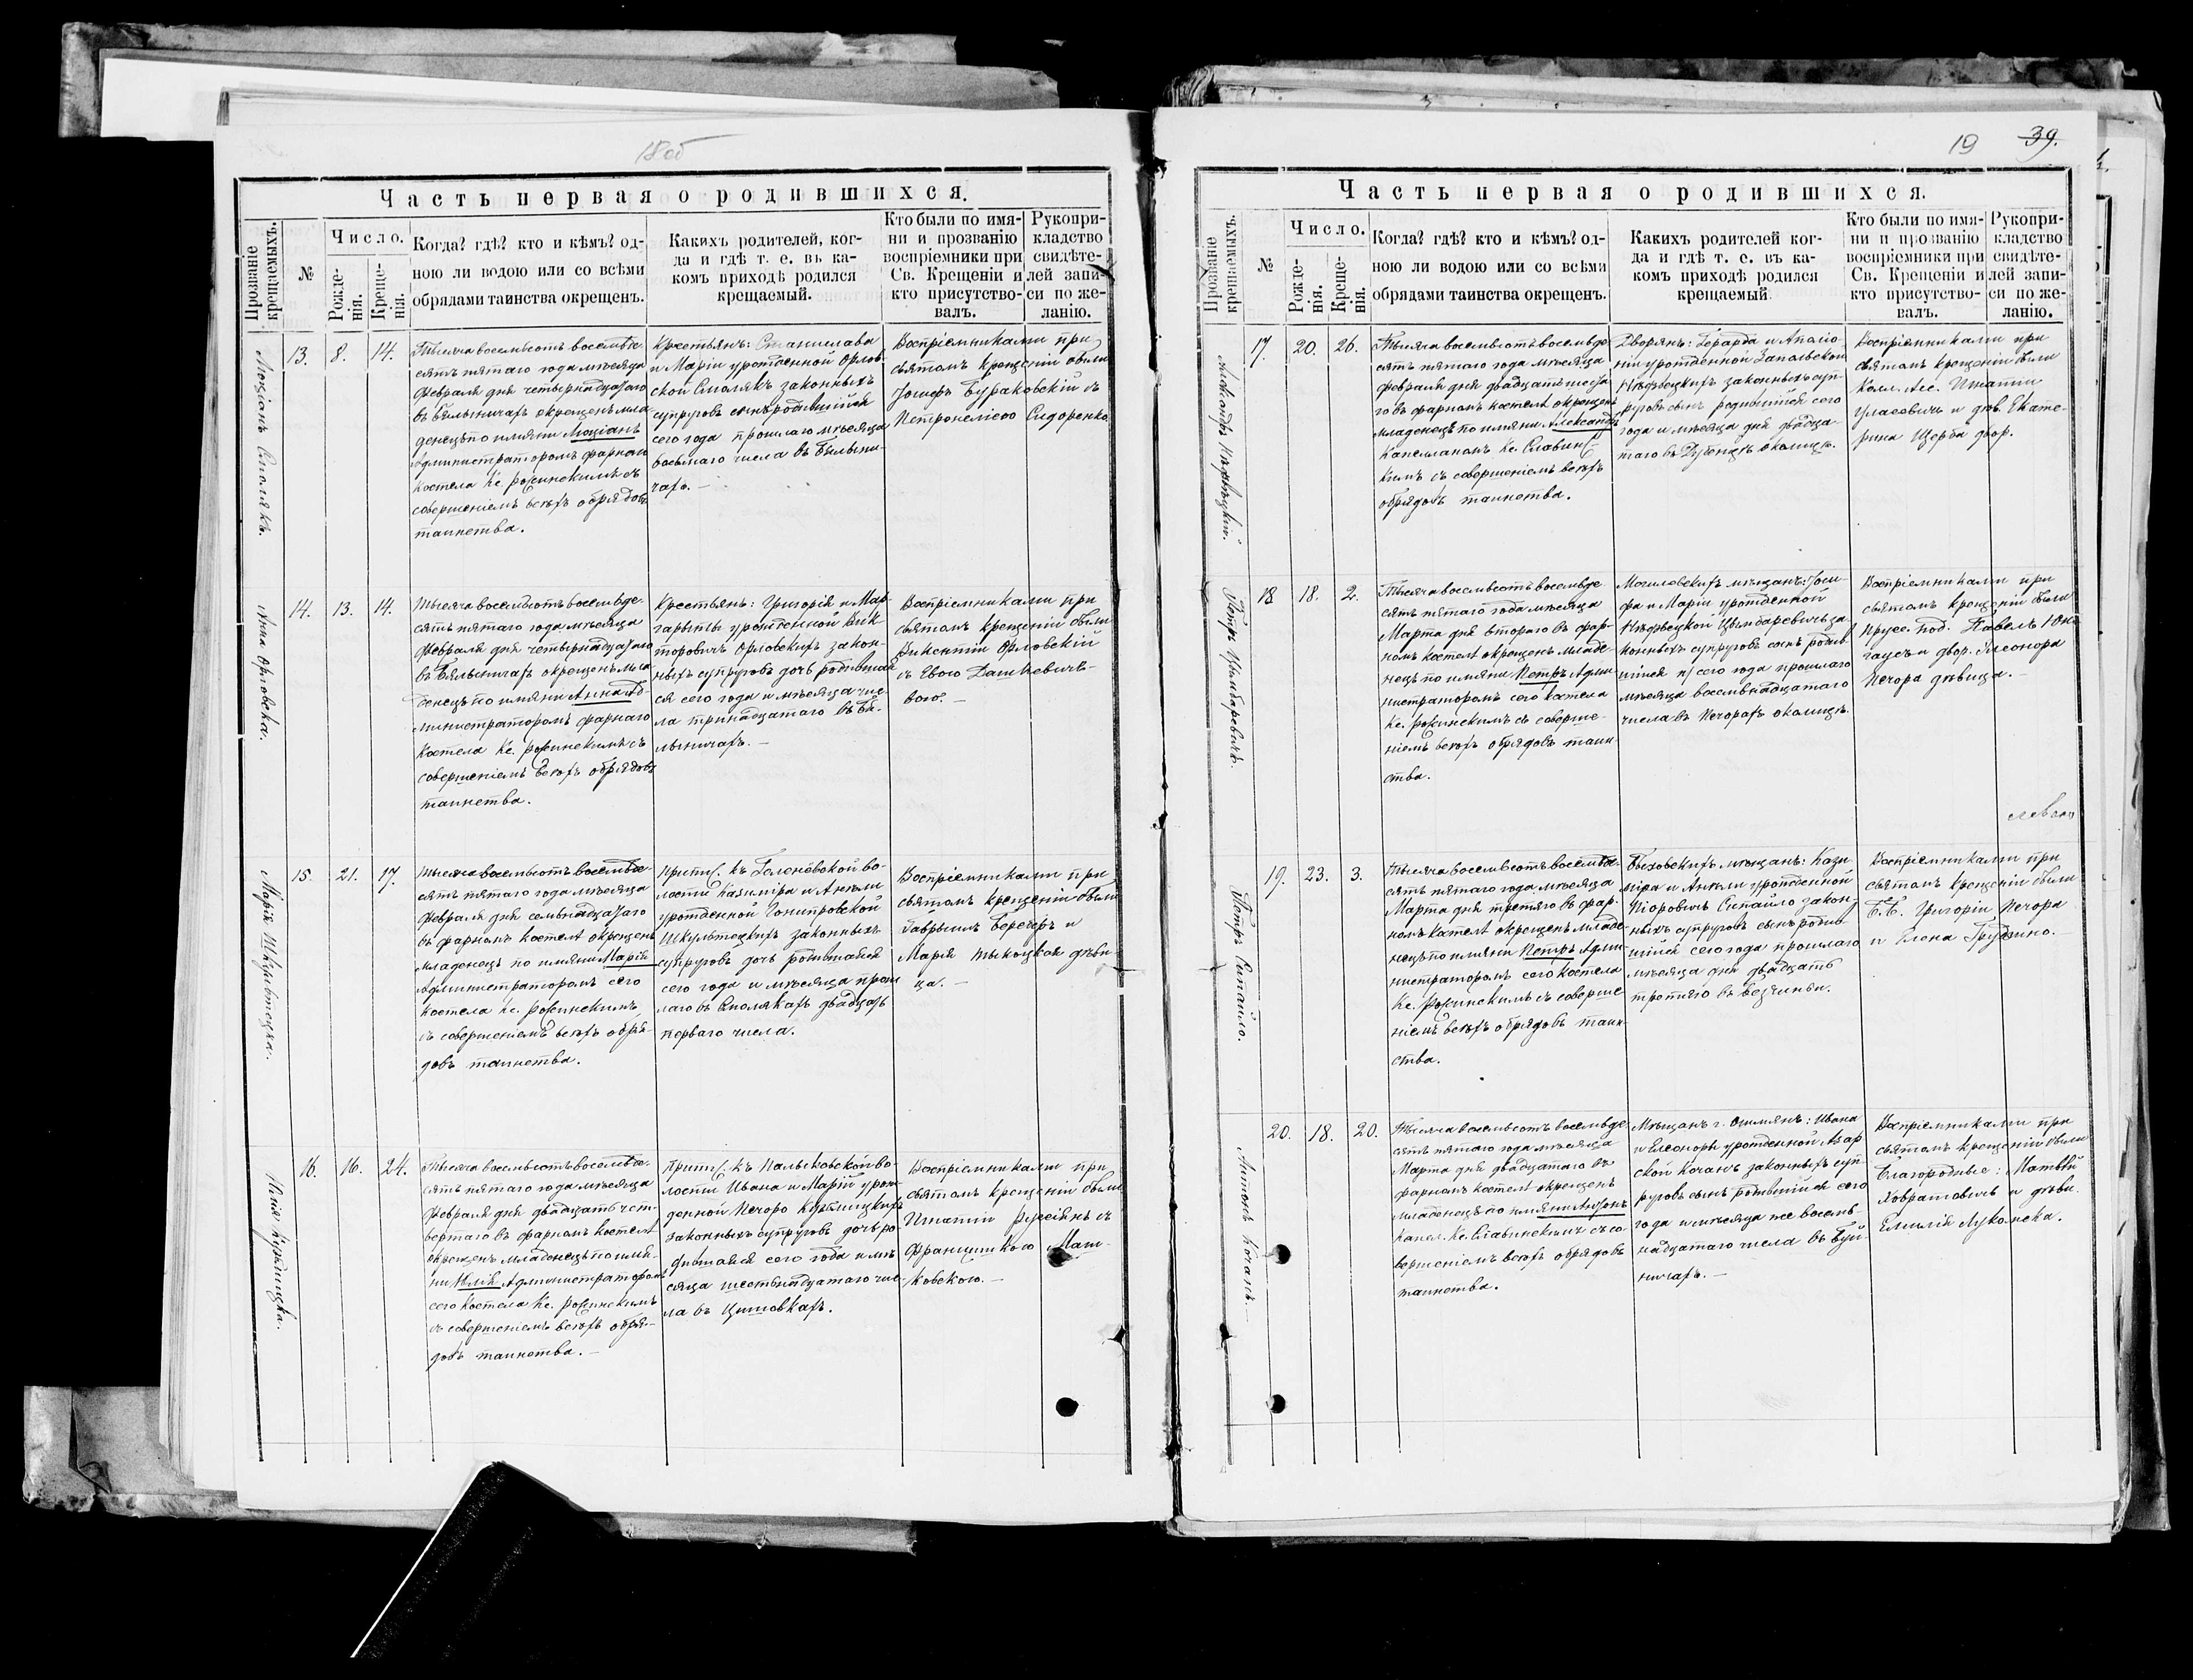 18 об
Часть первая о родившихся.
Прозваніе крещаемыхъ.
№
Число.
Рожде-
нія.
Креще-
нія.
Когда? гдѣ? кто и кѣмъ? од-
ною ли водою или со всѣми
обрядами таинства окрещенъ.
Какихъ родителей, ког-
да и гдѣ т. е. въ ка-
комъ приходѣ родился
крещаемый.
Кто были по имя-
ни и прозванію
воспріемники при
Св. Крещеніи и
кто присутство-
валъ.
Рукопри-
кладство
свидѣте-
лей запи-
си по же-
ланію.
Люціанъ Смолякъ.
13.
8.
14.
Тысяча восемьсотъ восемьде-
сятъ пятаго года мѣсяца
Февраля дня четырнадцатаго
въ Бялыничахъ окрещенъ мла-
денецъ по имяни Люціанъ
Администраторомъ фарнаго
костела Кс. съ
совершеніемъ всѣхъ обрядовъ
таинства.
Крестьянъ: Станислава
и Маріи урожденной Орлов-
ской Смолякъ законныхъ
супруговъ сынъ родившійся
сего года прошлаго мѣсяца
восьмаго числа въ Бялыни-
чахъ.
Воспріемниками при
святомъ крещеніи были
Іосифъ Бураковскій съ
Петронелею Сидоренко.
Анна Орловска.
14.
13.
14.
Тысяча восемьсотъ восемьде-
сятъ пятаго года мѣсяца
Февраля дня четырнадцатаго
въ Бялыничахъ окрещенъ мла-
денецъ по имяни Анна Ад-
министраторомъ фарнаго
костела Кс. съ
совершеніемъ всѣхъ обрядовъ
таинства.
Крестьянъ: Григорія и Мар-
гариты урожденной Вик-
торовичъ Орловскихъ закон-
ныхъ супруговъ дочь родившая-
ся сего года и мѣсяца чис-
ла тринадцатаго въ Бя-
лыничахъ. —
Воспріемниками при
святомъ крещеніи были
Викентій Орловскій
съ Евою Дашкевиче-
вою. —
Марія
15.
21.
17.
Тысяча восемьсотъ восемьде-
сятъ пятаго года мѣсяца
Февраля дня семьнадцатаго
въ фарномъ костелѣ окрещенъ
младенецъ по имяни Марія
Администраторомъ сего
костела Кс.
съ совершеніемъ всѣхъ обря-
довъ таинства.
къ во-
лости Казиміра и Анели
урожденной
законныхъ
супруговъ дочь родившаяся
сего года и мѣсяца прош-
лаго въ Смолякахъ двадцать
перваго числа.
Воспріемниками при
святомъ крещеніи были
и
Марія дѣви-
ца. —
16.
16.
24.
Тысяча восемьсотъ восемьде-
сятъ пятаго года мѣсяца
Февраля дня двадцать чет-
вертаго въ фарномъ костелѣ
окрещенъ младенецъ по имя-
ни Администраторомъ
сего костела Кс.
съ совершеніемъ всѣхъ обря-
довъ таинства. —
къ во-
лости Ивана и Маріи урож-
денной Печоро
законныхъ супруговъ дочь ро-
дившаяся сего года и мѣ-
сяца шестнадцатаго чис-
ла въ Цитовкахъ.
Воспріемниками при
святомъ крещеніи были
Игнатій съ
Францишкою Маш-
ковскою. —
19
39.
Часть первая о родившихся.
Прозваніе крещаемыхъ.
№
Число.
Рожде-
нія.
Креще-
нія.
Когда? гдѣ? кто и кѣмъ? од-
ною ли водою или со всѣми
обрядами таинства окрещенъ.
Какихъ родителей ког-
да и гдѣ т. е. въ ка-
комъ приходѣ родился
крещаемый.
Кто были по имя-
ни и прозванію
воспріемники при
Св. Крещеніи и
кто присутство-
валъ.
Рукопри-
кладство
свидѣте-
лей запи-
си по же-
ланію.
Александръ
17.
20.
26.
Тысяча восемьсотъ восемьде-
сятъ пятаго года мѣсяца
февраля дня двадцать шеста-
го въ фарномъ костелѣ окрещенъ
младенецъ по имяни Александръ
Капелланомъ Кс. Славинс-
кимъ съ совершеніемъ всѣхъ
обрядовъ таинства.
Дворянъ: Герарда и Аполо-
ніи урожденной Запольской
законныхъ суп-
руговъ сынъ родившійся сего
года и мѣсяца дня двадца-
таго въ околицѣ.
Воспріемниками при
святомъ крещеніи были
Кол. Ас. Игнатій
Уласовичъ и дѣв. Екате-
рина Щерба двор.
Петръ Цымбаревичъ.
18
18.
2.
Тысяча восемьсотъ восемьде-
сятъ пятаго года мѣсяца
Марта дня втораго въ фар-
номъ костелѣ окрещенъ младе-
нецъ по имяни Петръ Адми-
нистраторомъ сего костела
Кс. съ соверше-
ніемъ всѣхъ обрядовъ таин-
ства.
Могилевскихъ мѣщанъ: Іоси-
фа и Маріи урожденной
за-
конныхъ супруговъ сынъ родив-
шійся сего года прошлаго
мѣсяца восемьнадцатаго
числа въ Печорахъ околицѣ.
Воспріемниками при
святомъ крещеніи были
Прусс. под. Павелъ
и двор. Элеонора
Печора дѣвица. —
Петръ Сипайло.
19.
23.
3.
Тысяча восемьсотъ восемьде-
сятъ пятаго года мѣсяца
Марта дня третяго въ фар-
номъ костелѣ окрещенъ младе-
нецъ по имяни Петръ Адми-
нистраторомъ сего костела
Кс. съ соверше-
ніемъ всѣхъ обрядовъ таин-
ства.
Быховскихъ мѣщанъ: Кази-
міра и Анели урожденной
Піоровичъ Сипайло закон-
ныхъ супруговъ сынъ родив-
шійся сего года прошлаго
мѣсяца дня двадцать
третяго въ
Воспріемниками при
святомъ крещеніи были
Б.Б. Григорій Печора
и Елена
Антонъ Кочанъ.
20.
18.
20.
Тысяча восемьсотъ восемьде-
сятъ пятаго года мѣсяца
Марта дня двадцатаго въ
фарномъ костелѣ окрещенъ
младенецъ по имяни Антонъ
Капел. Кс. Славинскимъ съ со-
вершеніемъ всѣхъ обрядовъ
таинства.
Мѣщанъ г. Ошмянъ: Ивана
и Елеоноры урожденной
Кочанъ законныхъ суп-
руговъ сынъ родившійся сего
года и мѣсяца же восемь-
надцатаго числа въ Буй-
ничахъ. —
Воспріемниками при
святомъ крещеніи были
Благородные: Матвѣй
и дѣви.
Емилія